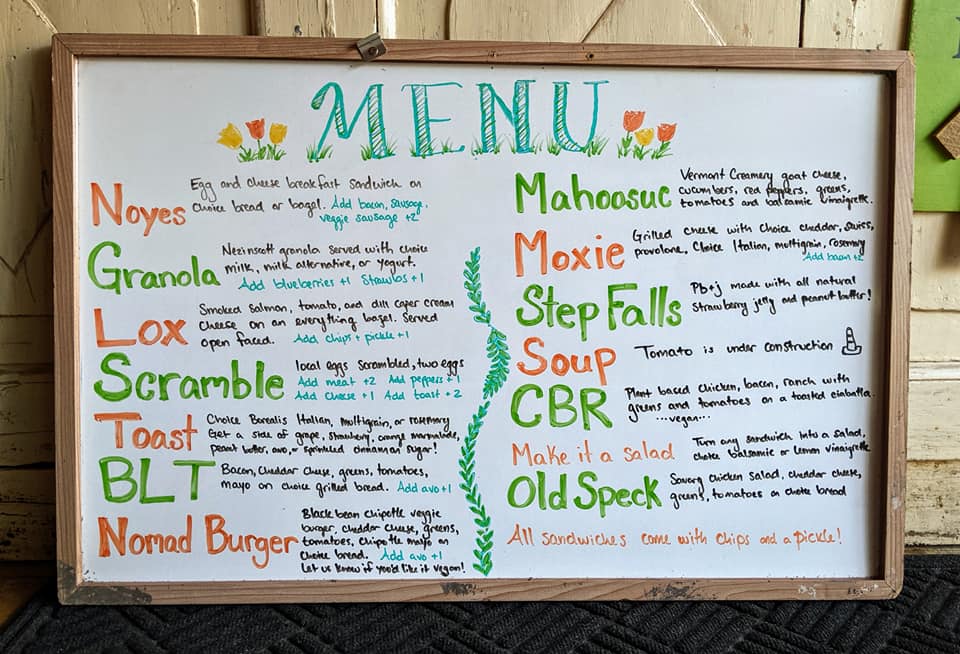 MENU
Noyes
Egg and cheese breakfast sandwich on
choice bread or bagel. Add bacon, sausage,
veggie sausage +2
Granola
Nezinscott granola served with choice
milk, milk alternative, or yogurt.
Add blueberries +1 Strawbs +1
Lox
Smoked salmon, tomato, and dill caper cream
cheese on an everything bagel. Served
open faced. Add chips + pickle +1
Scramble
local eggs scrambled, two eggs
Add meat +2 Add peppers +1
Add cheese +1 Add toast +2
Toast
Choice Borealis Italian, multigrain, or rosemary
Get a side of grape, strawberry, orange marmalade,
peanut butter, avo, or sprinkled cinnamon sugar!
BLT
Bacon, cheddar cheese, greens, tomatoes,
mayo on choice grilled bread. Add avo +1
Nomad Burger
Black bean chipotle veggie
burger, cheddar cheese, greens,
tomatoes, chipotle mayo on
choice bread. Add avo +1
Let us know if you'd like it vegan!
Mahoosuc
Vermont Creamery goat cheese,
cucumbers, red peppers, greens,
tomatoes and balsamic vinaigrette.
Moxie
Grilled cheese with choice cheddar, swiss,
provolone, Choice Italian, multigrain, rosemary
Add bacon +2
Step Falls
Pb+j made with all natural
strawberry jelly and peanut butter!
Soup
Tomato is under construction
CBR
Plant based chicken, bacon, ranch with
greens and tomatoes on a toasted ciabatta.
....vegan...
Make it a salad
Turn any sandwich into a salad,
choice balsamic or lemon vinaigrette
Old Speck
Savory chicken salad, cheddar cheese,
greens, tomatoes on choice bread
All sandwiches come with chips and a pickle!